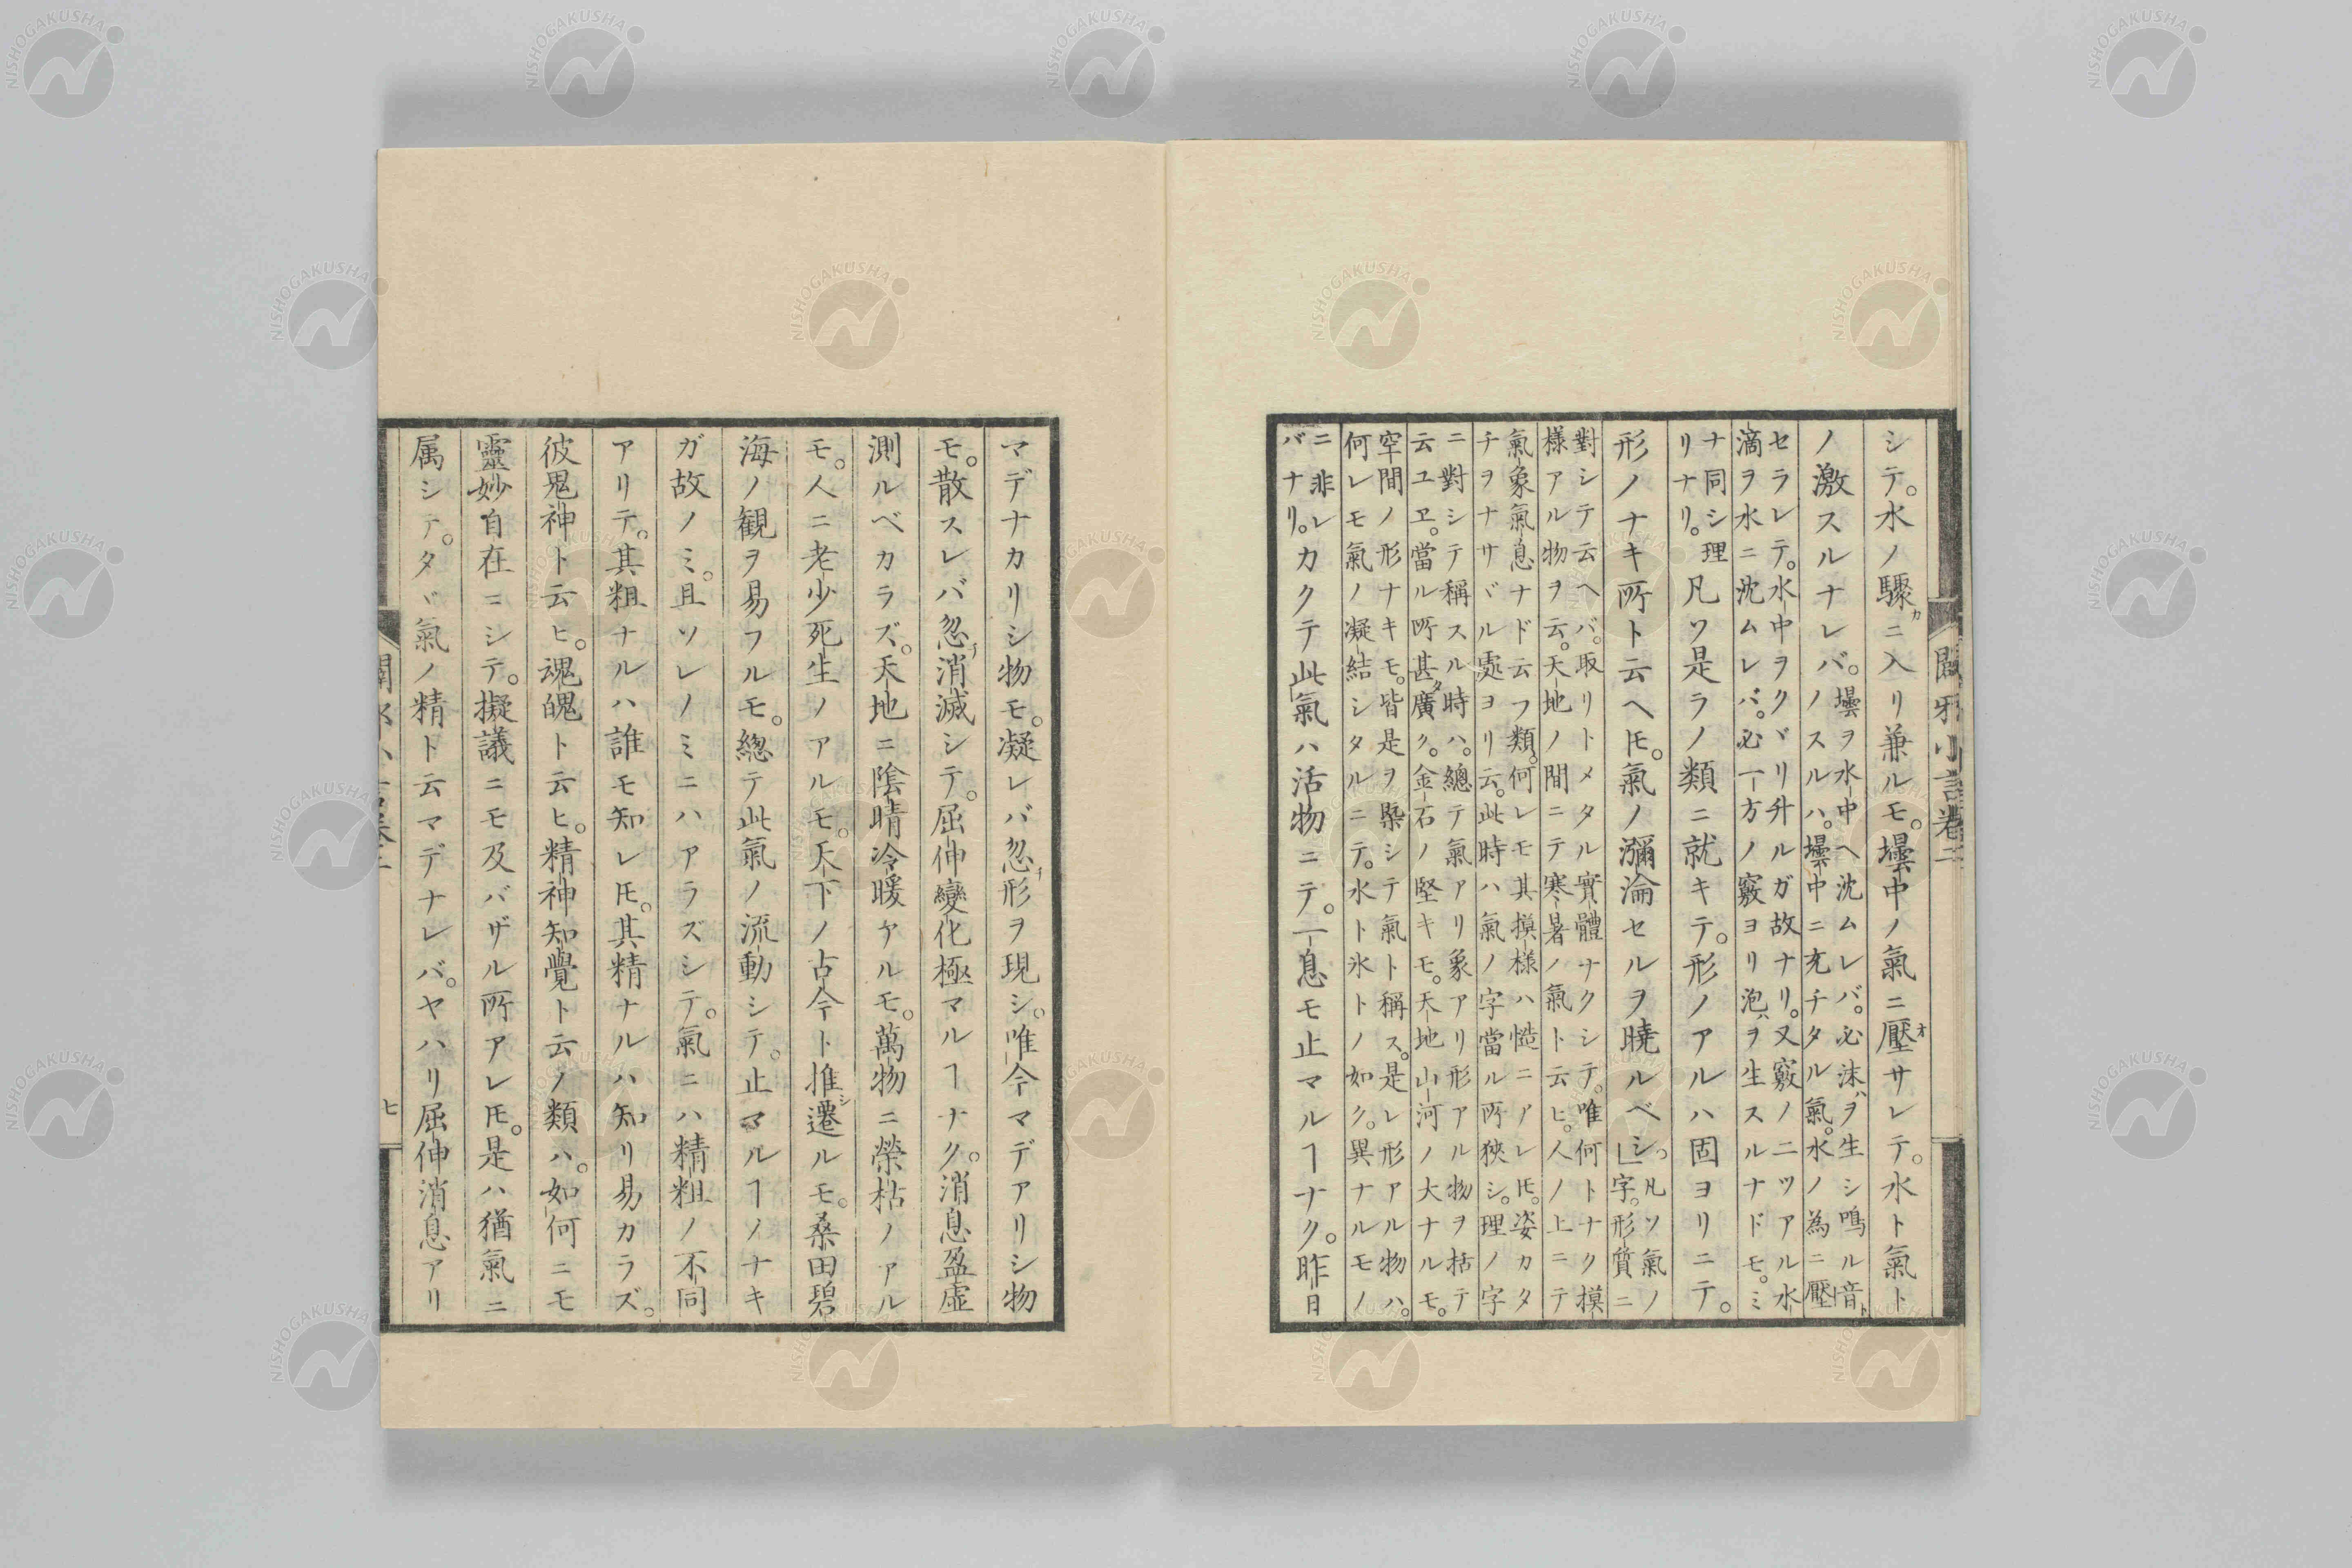 闢邪小言巻二
シテ。水ノ驟カニ入リ兼ルモ。壜中ノ氣ニ壓サレテ。水ト氣ト
ノ激スルナレバ。
壜ヲ水中ヘ沈ムレバ。必沫ヲ生シ鳴ル音
ノスルハ。壜中ニ充チタル氣。水ノ為ニ壓
セラレテ。水中ヲクヾリ升ルガ故ナリ。又竅ノ二ツアル水
滴ヲ水ニ沈ムレバ。必一方ノ竅ヨリ泡ヲ生スルナドモ。ミ
ナ同シ理
リナリ。
凡ソ是ラノ類ニ就キテ。形ノアルハ固ヨリニテ。
形ノナキ所ト云ヘ𪜈。氣ノ瀰淪セルヲ曉ルベシ。
凡ソ氣ノ
字。形質ニ
對シテ云ヘバ。取リトメタル實體ナクシテ。唯何トナク摸
樣アル物ヲ云。天地ノ間ニテ寒暑ノ氣ト云ヒ。人ノ上ニテ
氣象氣息ナド云フ類。何レモ其摸様ハ慥ニアレ𪜈。姿カタ
チヲナサヾル處ヨリ云。此時ハ氣ノ字當ル所狹シ。理ノ字
ニ對シテ稱スル時ハ。總テ氣アリ象アリ形アル物ヲ括テ
云ユヱ。當ル所甚廣ク。金石ノ堅キモ。天地山河ノ大ナルモ。
空間ノ形ナキモ。皆是ヲ槩シテ氣ト稱ス。是レ形アル物ハ。
何レモ氣ノ凝結シタルニテ。水ト氷トノ如ク。異ナルモノ
ニ非レ
バナリ。
カクテ此氣ハ活物ニテ。一息モ止マルヿナク。昨日
マデナカリシ物モ。凝レバ忽形ヲ現シ。唯今マデアリシ物
モ。散スレバ忽消滅シテ。屈伸變化極マルヿナク。消息盈虚
測ルベカラズ。天地ニ陰晴冷暖アルモ。萬物ニ榮枯ノアル
モ。人ニ老少死生ノアルモ。天下ノ古今ト推遷ルモ。桑田碧
海ノ観ヲ易フルモ。總テ此氣ノ流動シテ。止マルヿノナキ
ガ故ノミ。且ソレノミニハアラズシテ。氣ニハ精粗ノ不同
アリテ。其粗ナルハ誰モ知レ𪜈。其精ナルハ知リ易カラズ。
彼鬼神ト云ヒ。魂魄ト云ヒ。精神知覺ト云ノ類ハ。如何ニモ
靈妙自在ニシテ。擬議ニモ及バザル所アレ𪜈。是ハ猶氣ニ
属シテ。タヾ氣ノ精ト云マデナレバ。ヤハリ屈伸消息アリ
七